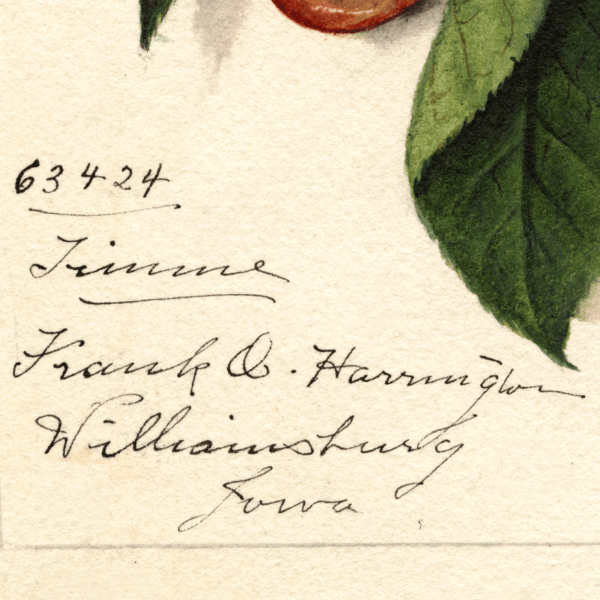 63424
Timme
Frank O. Harrington
Williamsburg
Iowa